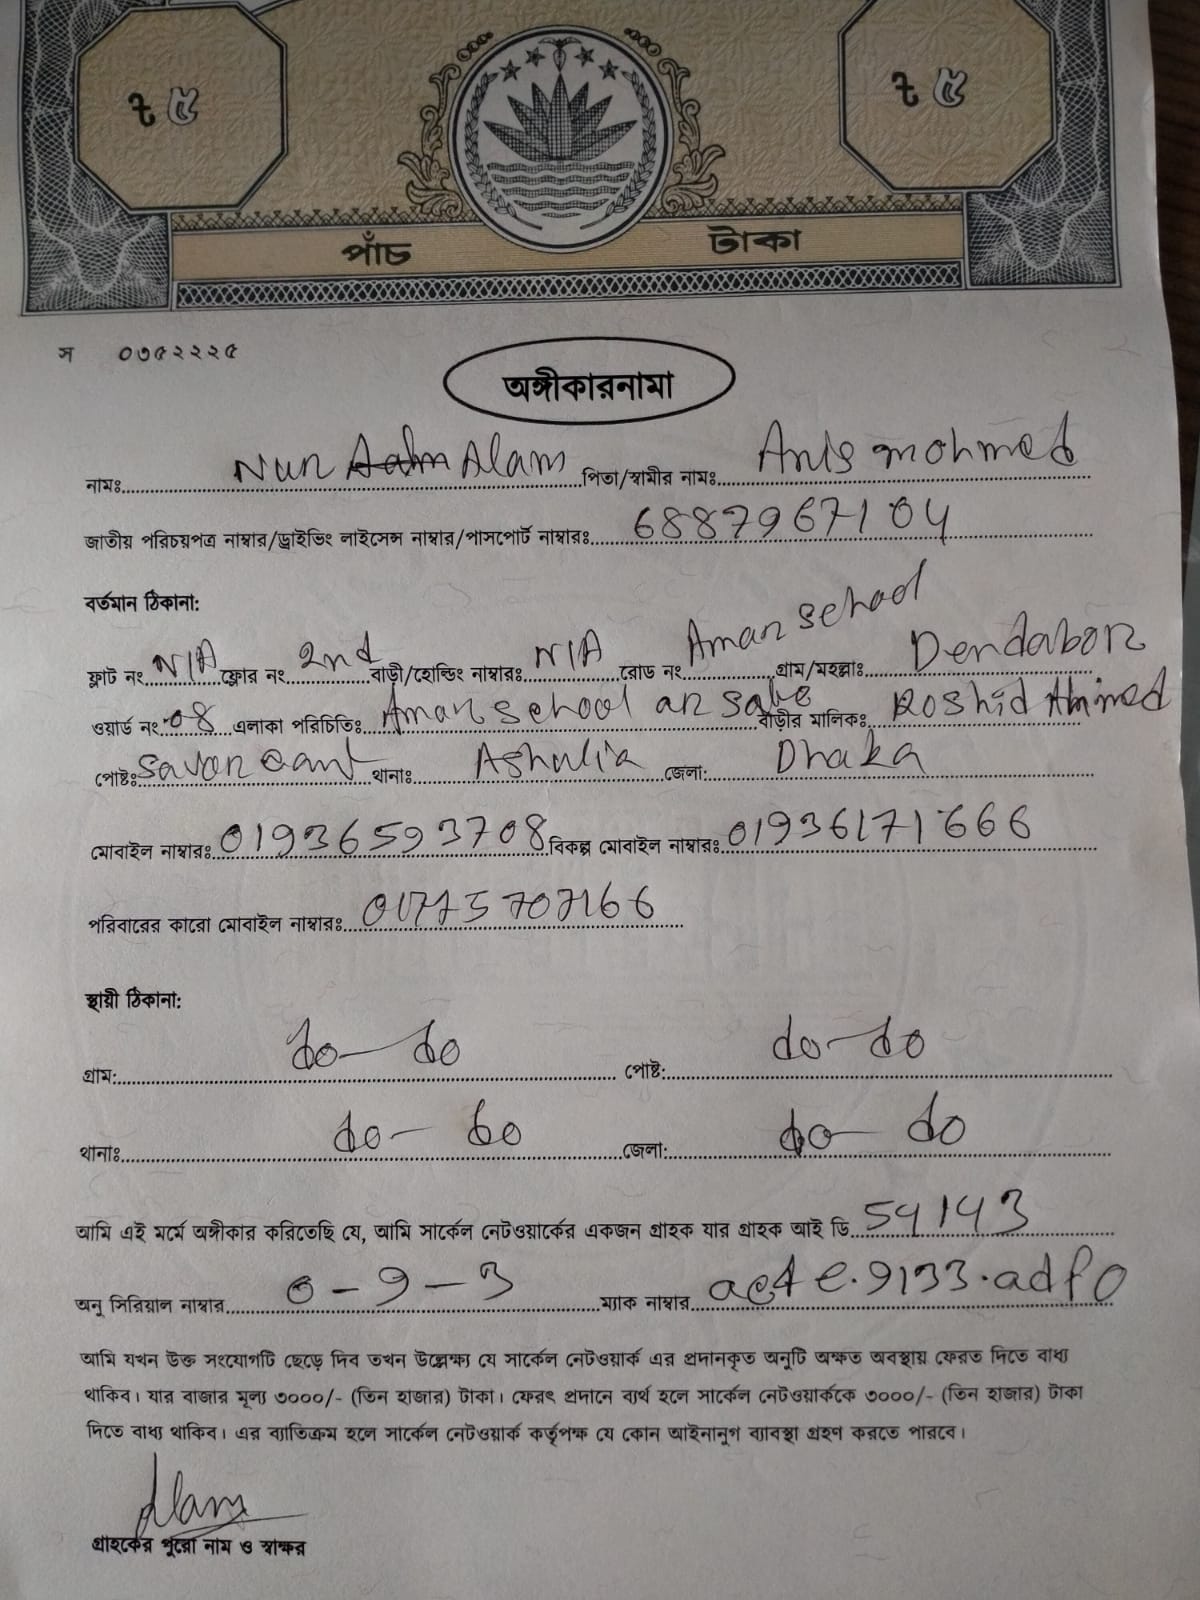 ৳ ৫ ৳ ৫
পাঁচ টাকা
স ০৩৫২২২৫
অঙ্গীকারনামা
নামঃ Nur Alam পিতা/স্বামীর নামঃ Anis mohmed
জাতীয় পরিচয়পত্র নাম্বার/ড্রাইভিং লাইসেন্স নাম্বার/পাসপোর্ট নাম্বারঃ 6887967104
বর্তমান ঠিকানা:
ফ্লাট নং N/A ফ্লোর নং 2nd বাড়ী/হোল্ডিং নাম্বারঃ N/A রোড নং Aman School গ্রাম/মহল্লাঃ Dendabor
ওয়ার্ড নং 08 এলাকা পরিচিতিঃ Aman school বাড়ীর মালিকঃ Roshid Ahmed
পোষ্টঃ Savar cant থানাঃ Ashulia জেলা: Dhaka
মোবাইল নাম্বারঃ 01936593708 বিকল্প মোবাইল নাম্বারঃ 01936171666
পরিবারের কারো মোবাইল নাম্বারঃ 01775707166
স্থায়ী ঠিকানা:
গ্রাম: do- do পোষ্ট: do-do
থানাঃ do- do জেলা: do- do
আমি এই মর্মে অঙ্গীকার করিতেছি যে, আমি সার্কেল নেটওয়ার্কের একজন গ্রাহক যার গ্রাহক আই ডি 54143
অনু সিরিয়াল নাম্বার 0-9-3 ম্যাক নাম্বার
আমি যখন উক্ত সংযোগটি ছেড়ে দিব তখন উল্লেক্ষ্য যে সার্কেল নেটওয়ার্ক এর প্রদানকৃত অনুটি অক্ষত অবস্থায় ফেরত দিতে বাধ্য
থাকিব। যার বাজার মূল্য ৩০০০/- (তিন হাজার) টাকা। ফেরৎ প্রদানে ব্যর্থ হলে সার্কেল নেটওয়ার্ককে ৩০০০/- (তিন হাজার) টাকা
দিতে বাধ্য থাকিব। এর ব্যাতিক্রম হলে সার্কেল নেটওয়ার্ক কর্তৃপক্ষ যে কোন আইনানুগ ব্যাবস্থা গ্রহণ করতে পারবে।
Alam
গ্রাহকের পুরো নাম ও স্বাক্ষর